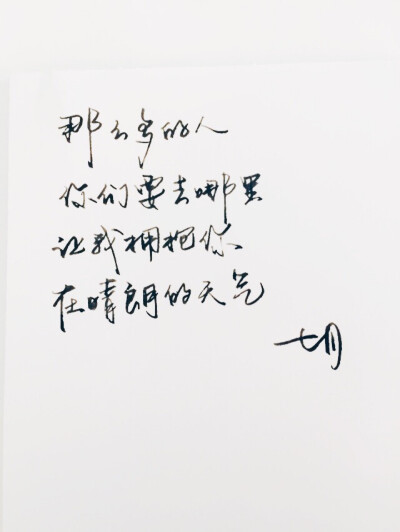 那么多的人
你们要去哪里
让我拥抱你
在晴朗的天气
七月